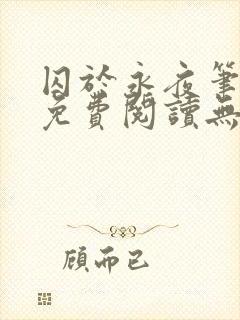 囚於永夜筆
免費閱讀無
顧而已